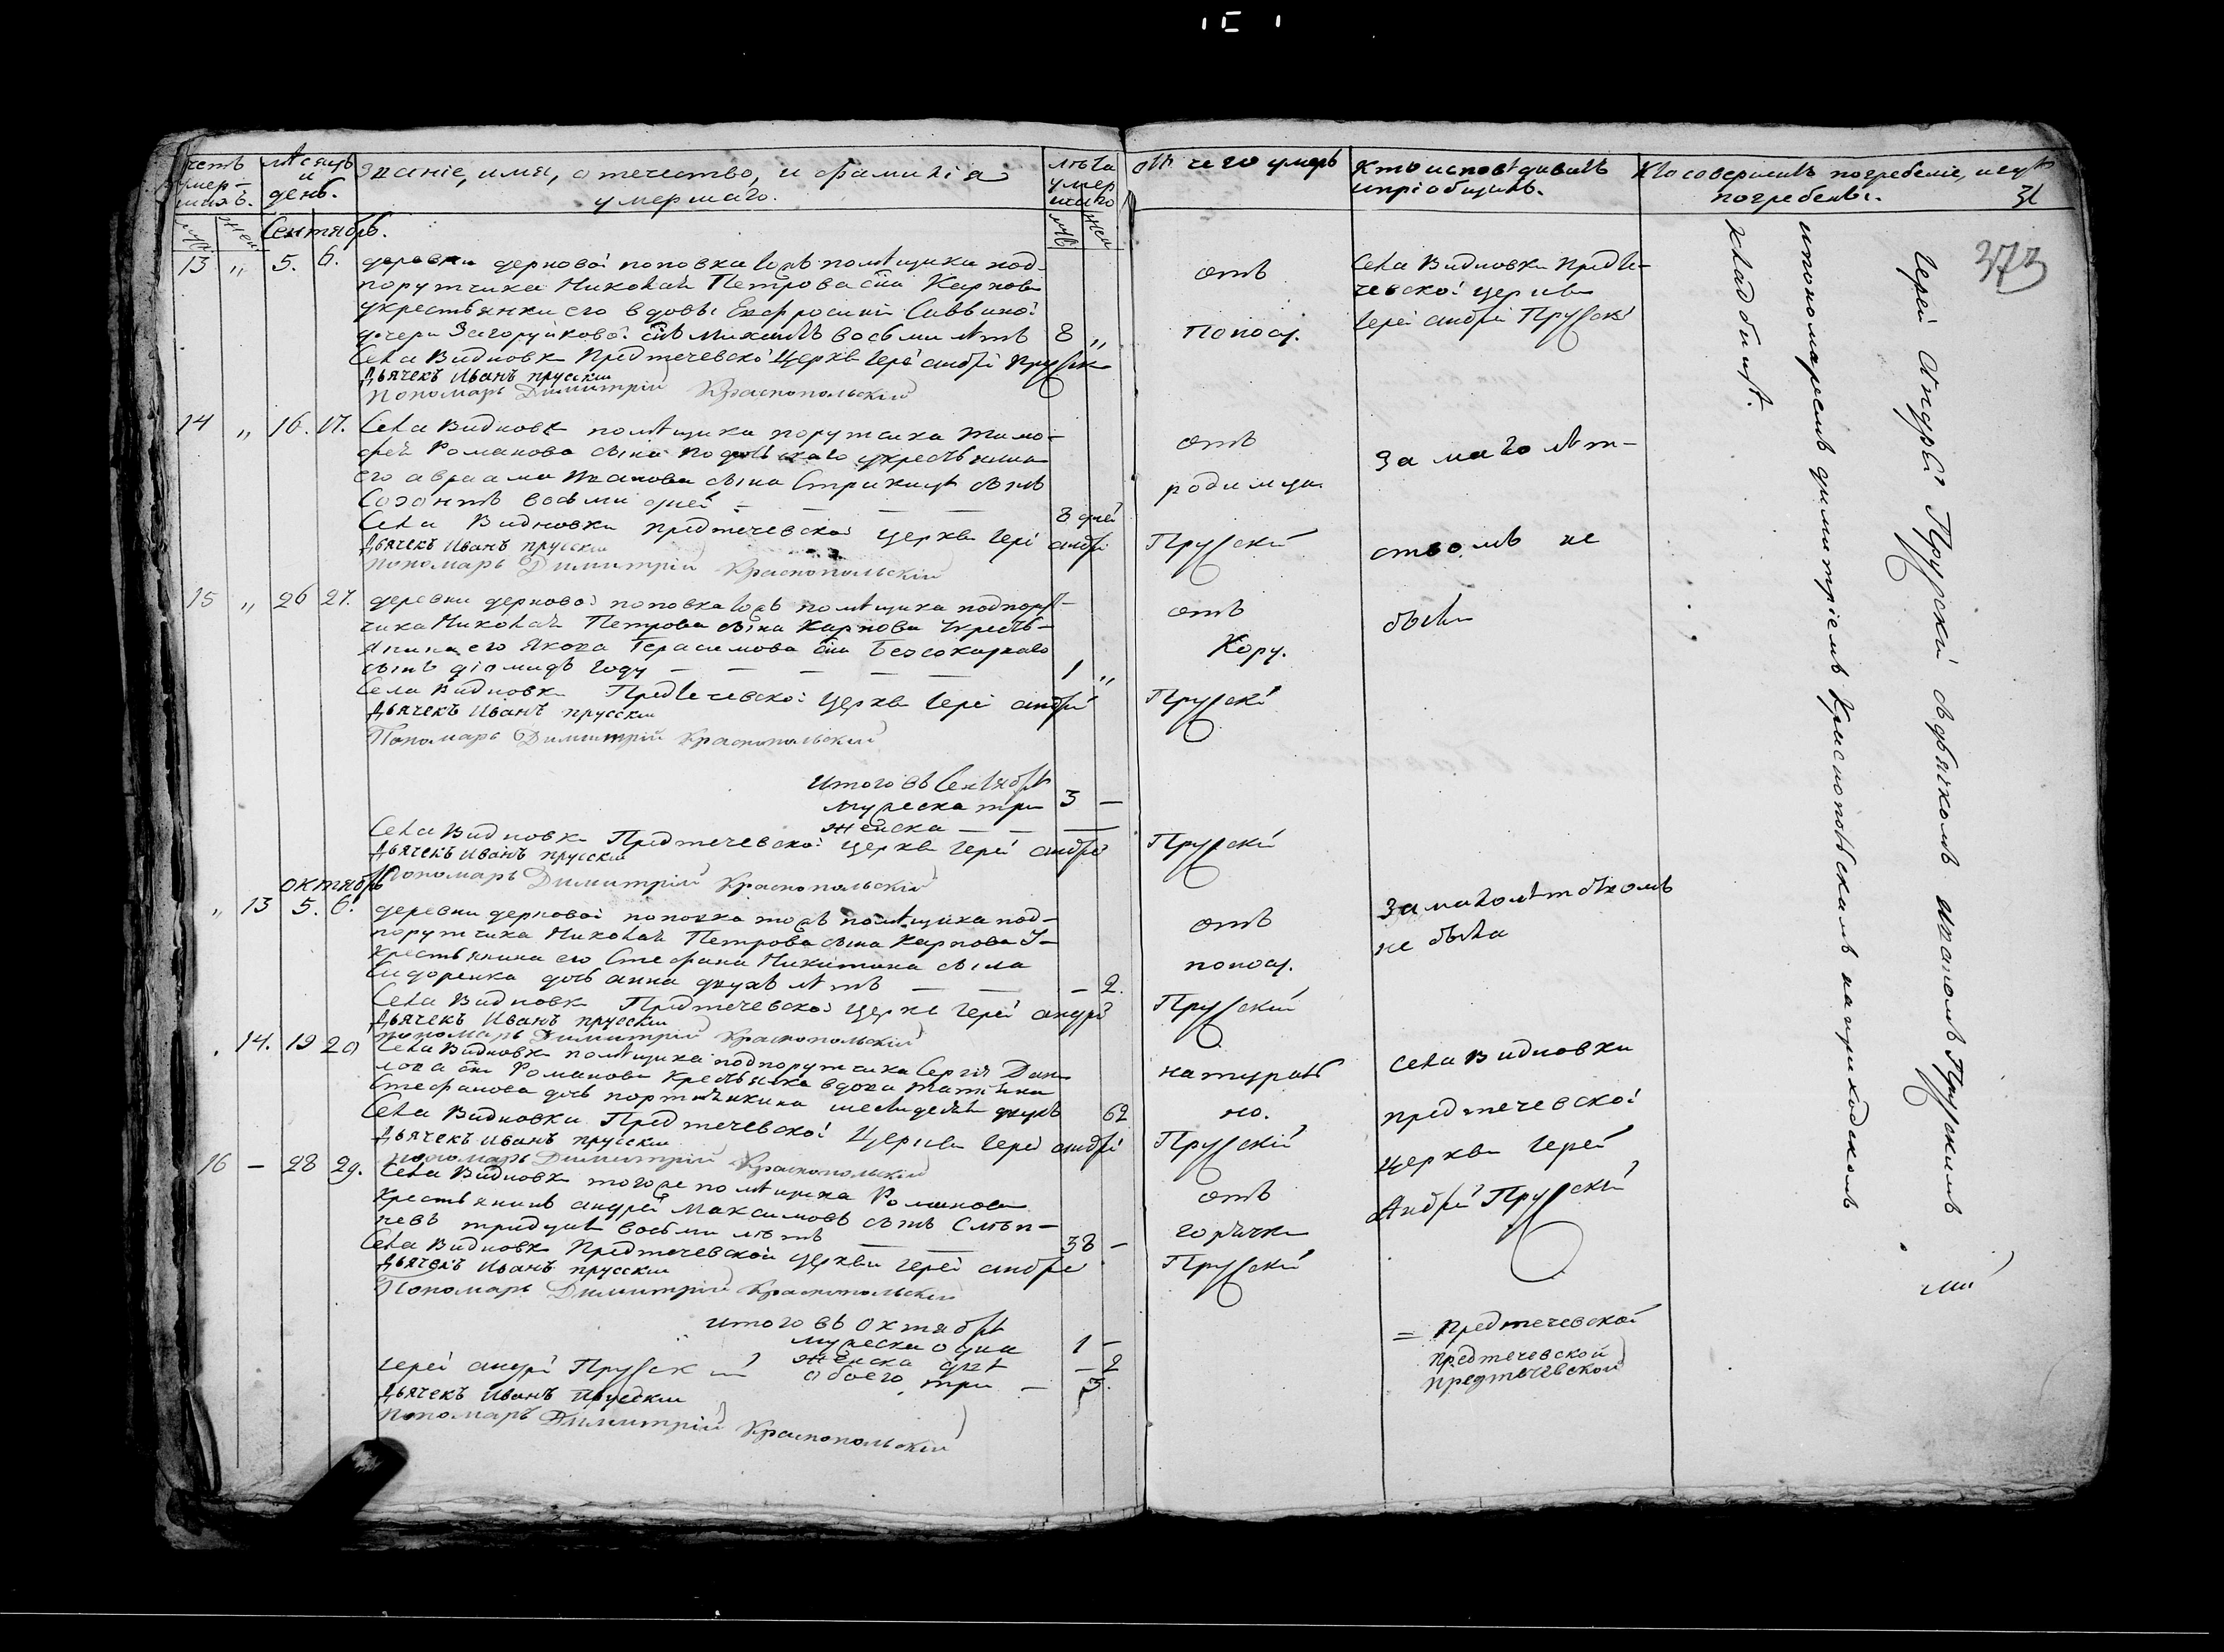 счетъ умер-шихъ.
мѣсяцъ и день.
Званіе, имя, отечество, и фамилія
умершаго.
лѣта умер шаго
отъ чего умеръ
кто исповѣдивалъ
и пріобщилъ.
Кто совершилъ погребеніе, и гдѣ
погребенъ.
31
373
муж жен
Сентябрь.
муж жен
13 „ 5. 6. деревни дерновой поповка тожъ помѣщика под-
поручика Николая Петрова сна Карпова
у крестьянки его вдовы Евфросиніи Саввиной
дочери Загоруйковой снъ Михаилъ восьми лѣтъ 8 „
отъ
поноса.
Села Видновки Предте-
чевской церкви
Іерей Андрей Прускій
Села Видновки Предтечевской Церкви Іерей Андрей Прускій
Дьячекъ Иванъ прусскій
Пономарь Димитрій Краснопольскій
14 „ 16. 17. Села Видновки помѣщика порутчика Тимо-
фея Романова сына укрестьянина
его авраама Иванова сына сынъ
Созонтъ восьми дней — — — 8 дней
отъ
родимца
За малолѣт-
Села Видновки предтечевской церкви Іерей андрей Прускій
ством не
Дьячекъ Иванъ прусскій
Пономарь Димитрій Краснопольскій
15 „ 26 27. деревни дерновой поповка тожъ помѣщика подпору-
чика Николая Петрова сына Карпова укресть-
янина его Якова Герасимова сна
сынъ діомидъ году — — — — 1 „
отъ
Кору.
былъ
Села Видновки Предтечевской Церкви Іерей андрей Прускій
Дьячекъ Иванъ прусскій
Пономарь Димитрій Краснопольскій
Итого въ Сентябрѣ
мужеска три 3 —
женска — — —
Села Видновки Предтечевской церкви Іерей андрей Прускій
Дьячекъ Иванъ прусскій
Пономарь Димитрій Краснопольскій
октябрь
„ 13 5. 6. деревни дерновой поповка тожъ помѣщика под-
порутчика Николая Петрова сына Карпова У-
крестьянина его Стефана Никитина сына
Сидоренка дочь анна двухъ лѣтъ — — — 2.
отъ
поноса.
За малолѣтствомъ
не была
Села Видновки Предтечевской Церкви Іерей андрей Прускій
Дьячекъ Иванъ прусскій
пономарь Димитрій Краснопольскій
. 14. 19 20 Села Видновки помѣщика подпорутчика Сергія Дани-
лова сна Романова Крестьянка вдова татіяна
Стефанова дочь шестидесяти двухъ 62
натураль
но.
Села Видновки
предтечевской
Церкви Іерей
Андрей Прускій
Села Видновки Предтечевской Церкви Іерей андрей Прускій
Дьячекъ Иванъ прусскій
пономарь Димитрій Краснопольскій
16 — 28 29. Села Видновки тогоже помѣщика Романова
Крестьянинъ андрей Максимовъ сынъ Слѣп-
невъ тридцати восьми лѣтъ — — 38 —
отъ
горячки
Села Видновки Предтечевской Церкви Іерей андрей Прускій
Дьячекъ Иванъ прусскій
Пономарь Димитрій Краснопольскій
итого въ Октябрѣ
мужеска один 1 —
женска двѣ — 2
обоего три — 3.
Іерей андрей Прускій
Дьячекъ Иванъ Прусскій
Пономарь Димитрій Краснопольскій
= Предтечевской
предтечевской
предтечевской
Іерей Андрей Прускій сдьячкомъ Иваномъ Прускимъ
ипономаремъ димитріемъ Краснопольскимъ наприходскомъ
кладбищѣ.